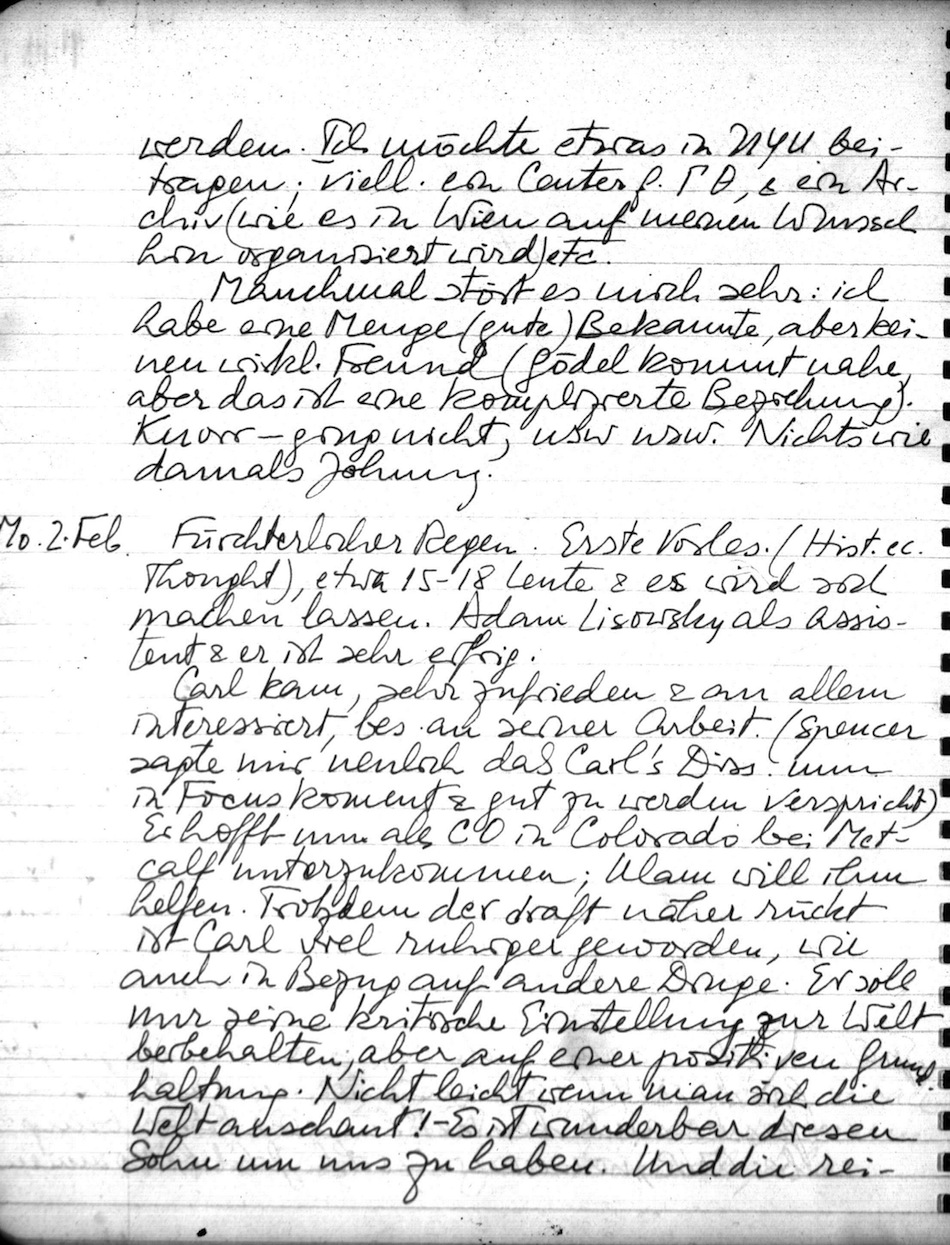 werden. Ich möchte etwas in NYU bei-
tragen; viell. ein Center f. Γ Θ, & ein Ar-
chiv (wie es in Wien auf meinen Wunsch
hin organisiert wird) etc.
Manchmal stört es mich sehr: ich
habe eine Menge (gute) Bekannte, aber kei-
nen wirkl. Freund (Gödel kommt nahe,
aber das ist eine komplizierte Beziehung).
Knorr – ging nicht, usw usw. Nichts wie
damals Johnny.
Mo. 2. Feb. Fürchterlicher Regen. Erste Vorles. (Hist. ec.
Thought), etwa 15-18 Leute & es wird sich
machen lassen. Adam Lisowsky als Assis-
tent & er ist sehr eifrig.
Carl kam, sehr zufrieden & an allem
interessiert, bes. an seiner Arbeit. (Spencer
sagte mir neulich daß Carl's Diss. nun
in Focus koment & gut zu werden verspricht)
Er hofft nun als CO in Colorado bei Met-
calf unterzukommen; Ulam will ihm
helfen. Trotzdem der draft näher rückt
ist Carl viel ruhiger geworden, wie
auch in Bezug auf andere Dinge. Er soll
nur seine kritische Einstellung zur Welt
beibehalten, aber auf einer positiven Grund-
haltung. Nicht leicht wenn man sich die
Welt anschaut! – Es ist wunderbar diesen
Sohn um uns zu haben. Und die rei-